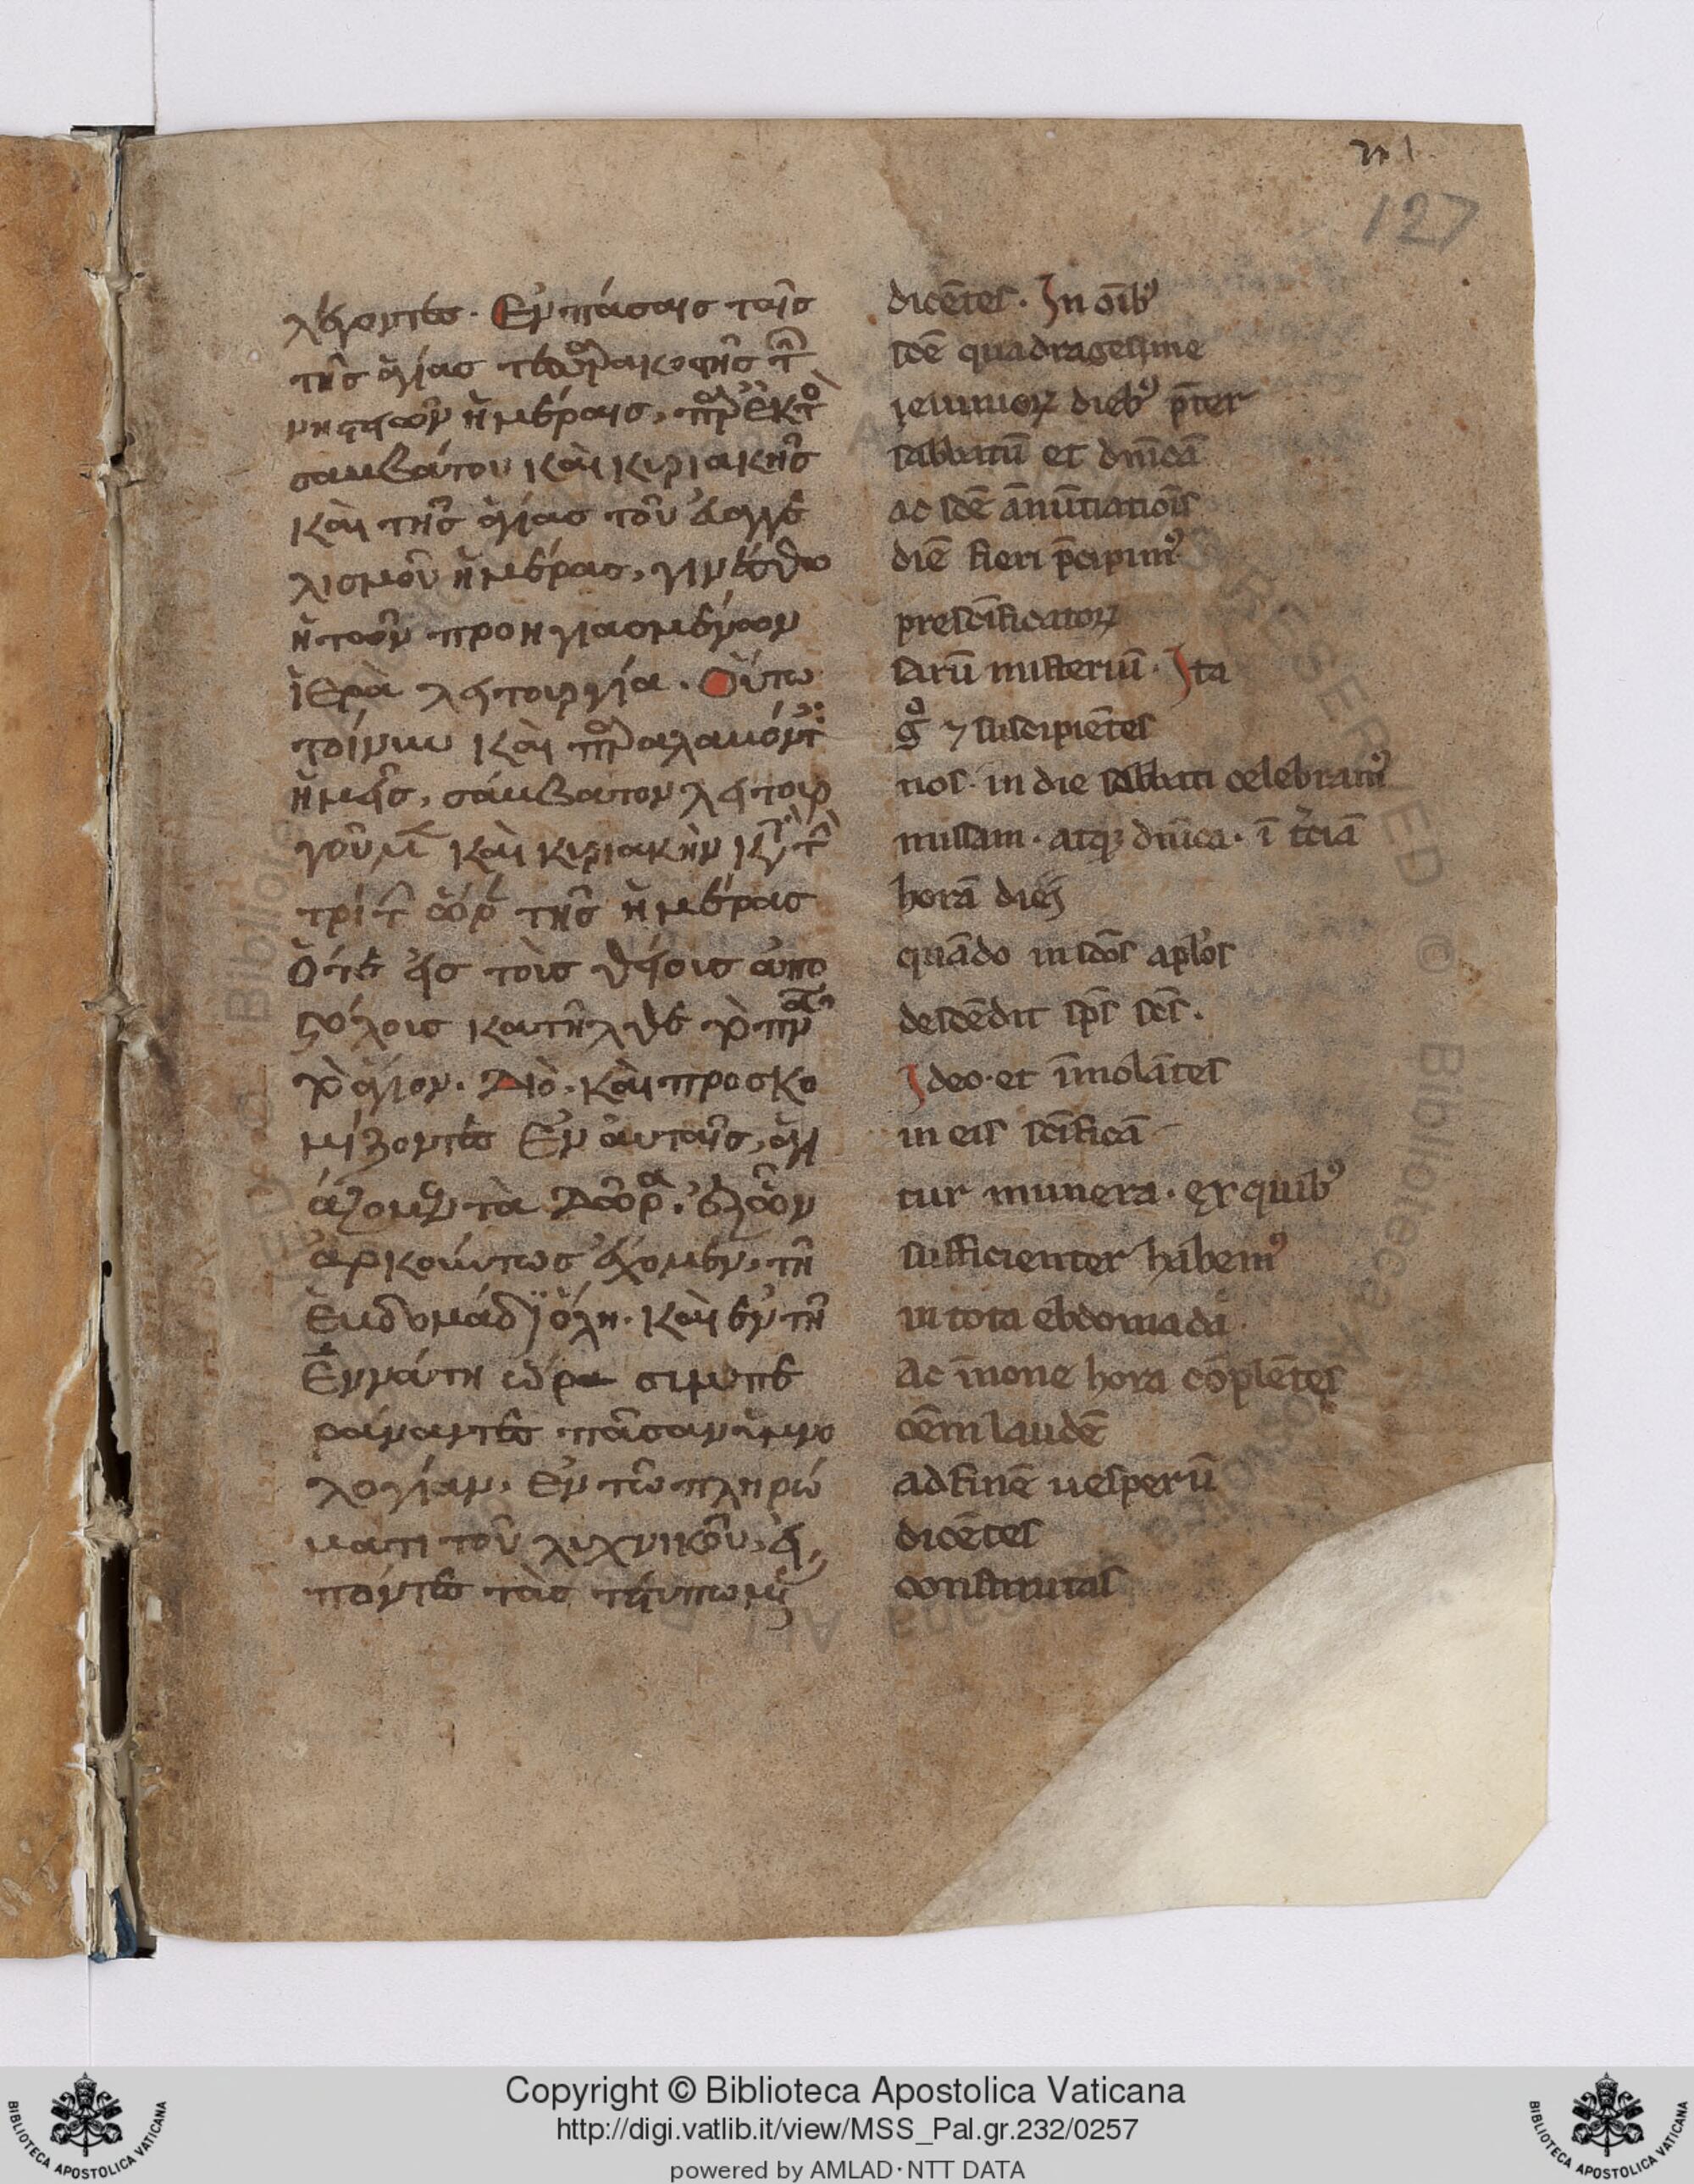 127
λέγοντες. Ἐν πάσαις ταῖς
τῆς ἁγίας
ἡμέραις,
σαμβάτου καὶ κυριακῆς
καὶ τῆς ἁγίας τοῦ
λισμοῦ ἡμέρας, γινέσθω
ἡ τῶν προηγιασμένων
ἱερὰ λειτουργία. Οὕτω
τοίνυν καὶ
ἡμεῖς, σάμβατον λειτουρ
γοῦμ καὶ κυριακὴν
τρίτ ὥρ τῆς ἡμέρας
Ὅτε εἰς τοῖς θείοις ἀπο
στόλοις κατῆλθε
ἅγιον. Διὸ καὶ προσκο
μίζοντες ἐν αὐταῖς, ἁγι
τὰ δῶρα.
ἀρκούντως ἔχομεν, τῇ
ἑμδομάδι ὅλη. καὶ ἐν τῇ
ἐννάτη ὥρα σιμπε
ράναντες πᾶσαν ὑμνο
λογίαν, ἐν τῶ πληρώ
ματι τοῦ λυχνικοῦ, εἰ
πόντες τὰς
dicētes. In oībꝰ
scē quadragesime
ieiuniorꝝ diebꝰ p̄ter
sabbatū et dn̄icā
ac scē ānūtiatiōis
diē fieri p̄cipimꝰ
prescīficatorꝝ
misteriū. Ita
gͦ ⁊ suscipiētes
nos. in die sabbati celebramꝰ
missam. atqꝫ dn̄ica. ī t̄ciā
horā diei
quādo in scōs aplōs
descēdit sp̄s scs̄.
Ideo. et īmolātes
in eis scīficā
tur munera. ex quibꝰ
sufficienter habemꝰ
in tota ebdomada.
Ac īnone hora cōplētes
oēm laudē
ad finē uesperū
dicētes
constitutas
Copyright © Biblioteca Apostolica Vaticana
http://digi.vatlib.it/view/MSS_Pal.gr.232/0257
powered by AMLAD·NTT DATA
BIBLIOTECA APOSTOLICA VATICANA
BIBLIOTECA APOSTOLICA VATICANA